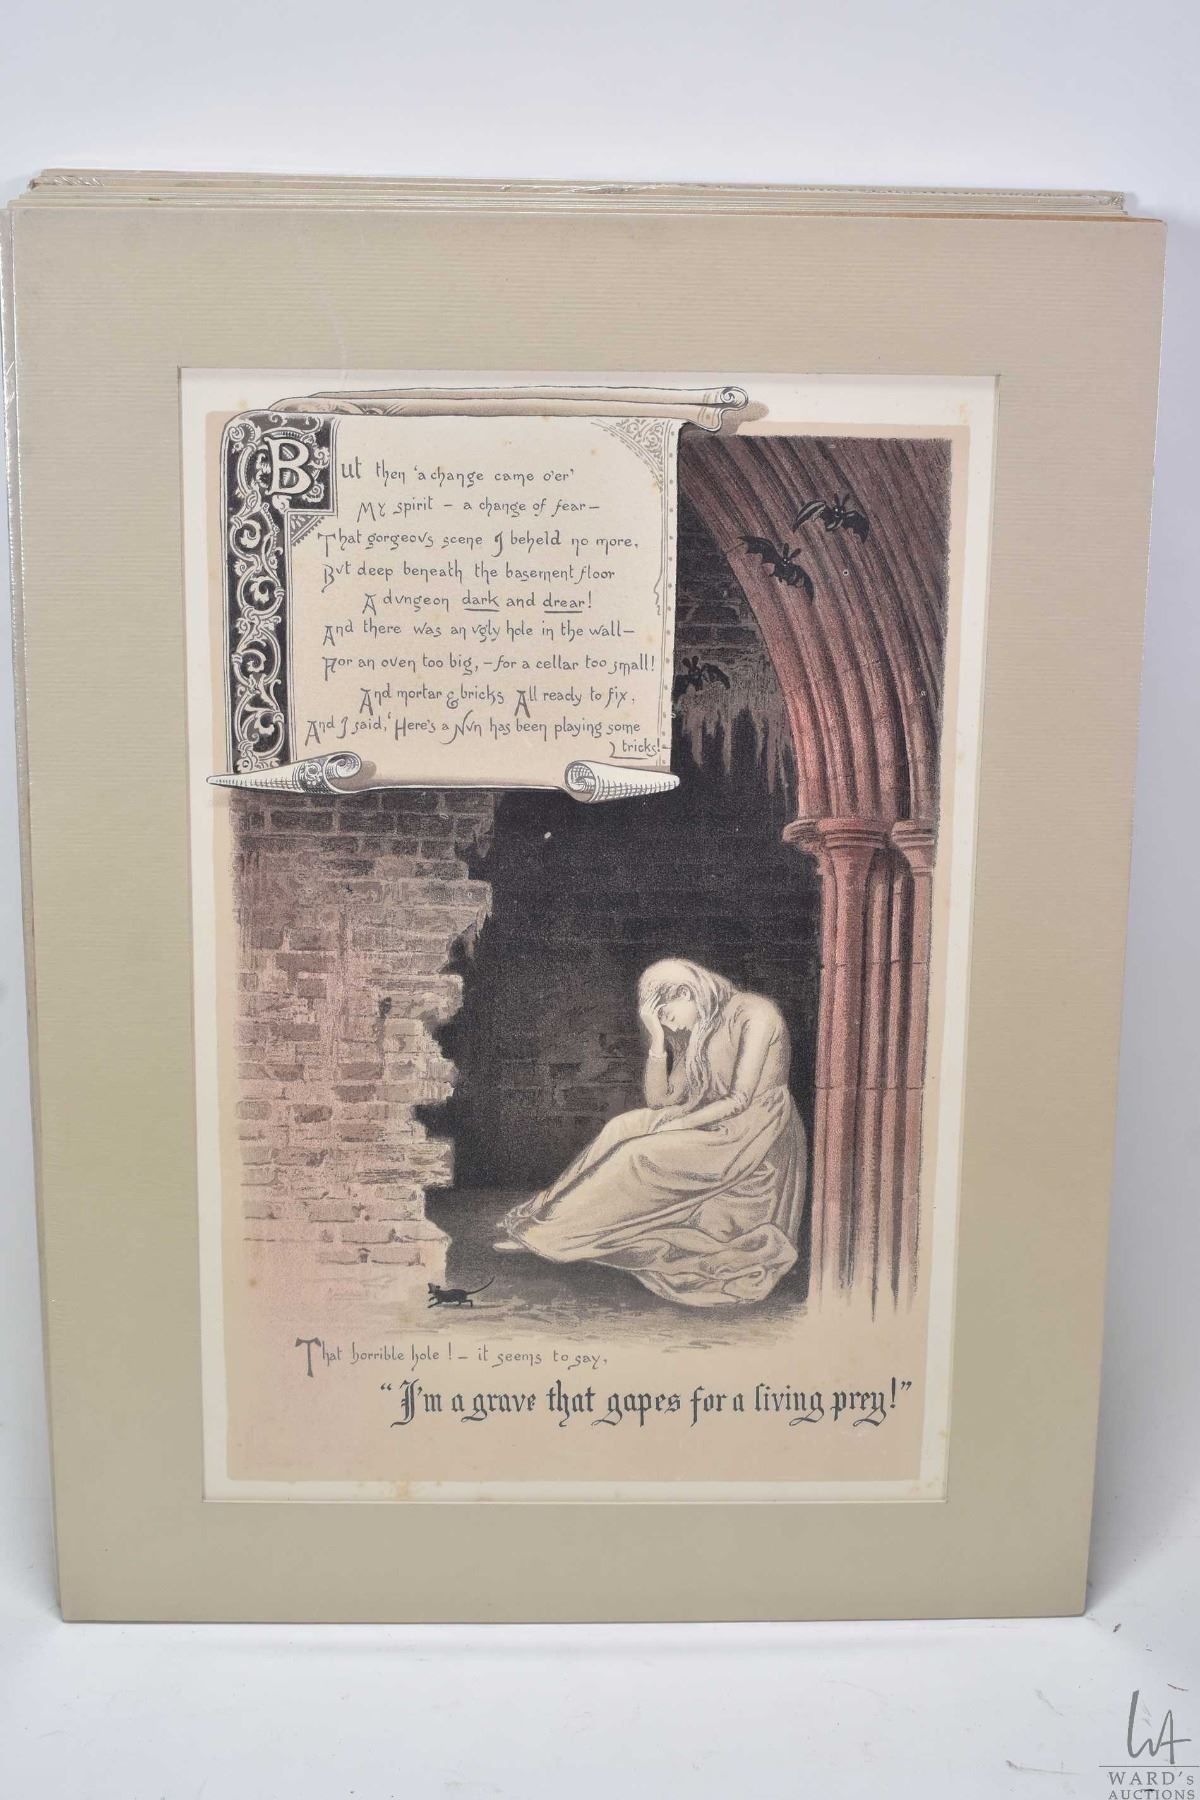 But then 'a change came o'er'
My spirit – a change of fear –
That gorgeous scene I beheld no more,
But deep beneath the basement floor
A dungeon dark and drear!
And there was an ugly hole in the wall –
For an oven too big, – for a cellar too small!
And mortar & bricks All ready to fix,
And I said, 'Here's a Nun has been playing some
tricks! –
That horrible hole! – it seems to say,
"I'm a grave that gapes for a living prey!"
WA
WARD's
AUCTIONS